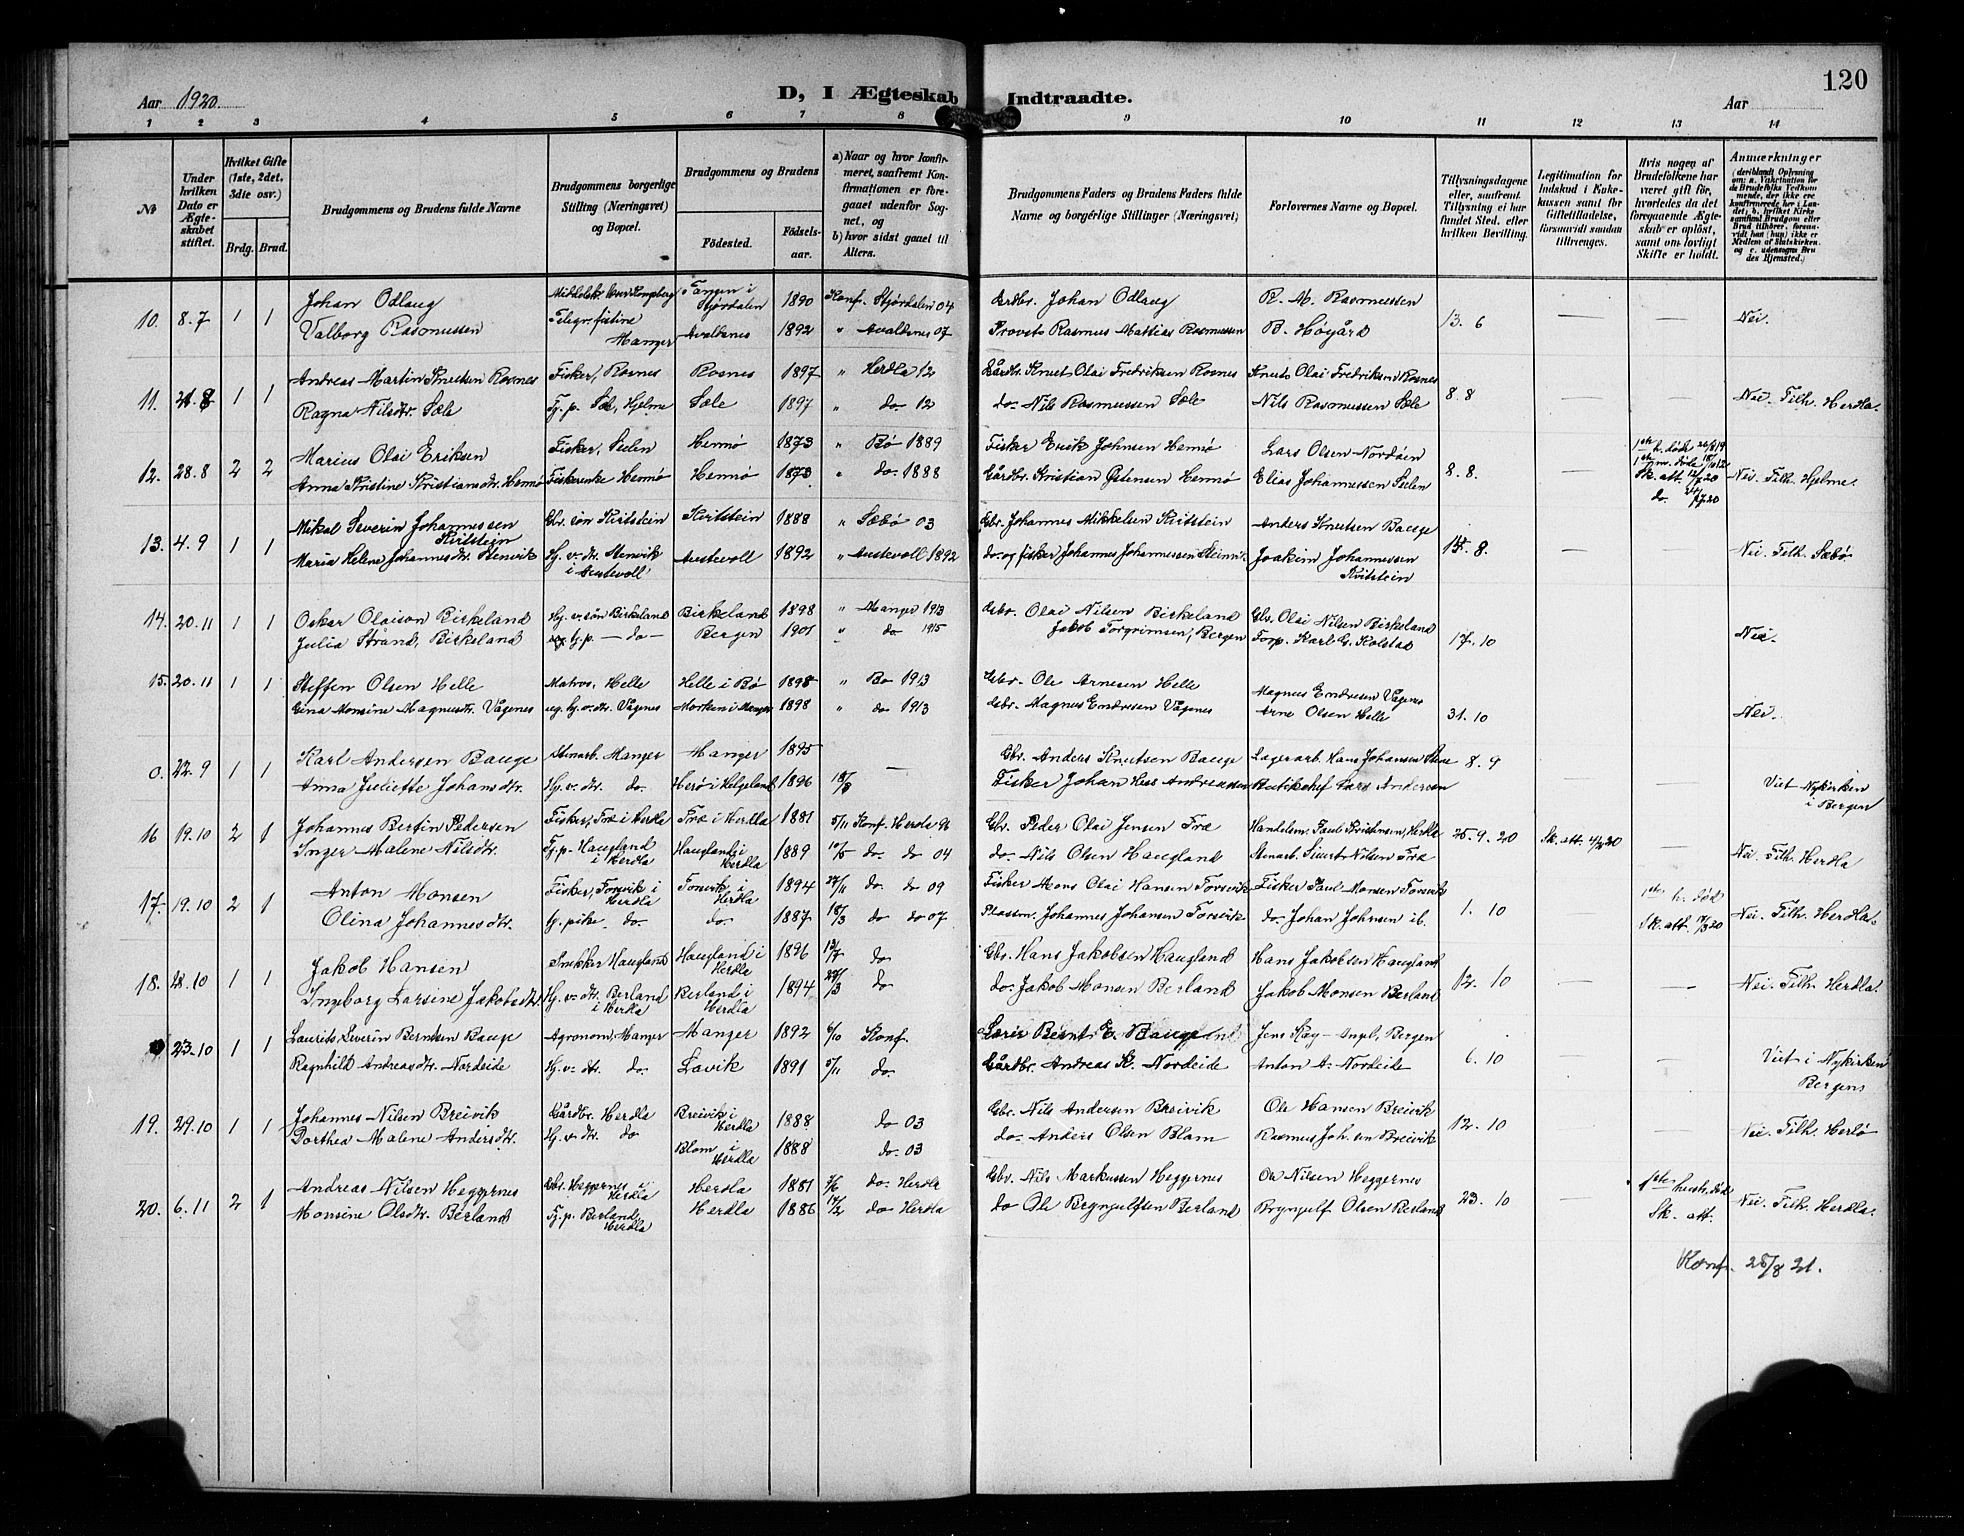 120
Aar 1920.
D, I Ægteskab Indtraadte.
Aar
1 2 3 4 5 6 7 8 9 10 11 12 13 14
№
Under hvilken Dato er Ægteskabet stiftet.
Hvilket Gifte (1ste, 2det, 3die osv.)
Brdg. Brud.
Brudgommens og Brudens fulde Navne
Brudgommens borgerlige Stilling (Næringsvei) og Bopæl.
Brudgommens og Brudens
Födested.
Födselsaar.
a) Naar og hvor konfirmeret, saafremt Konfirmationen er foregaaet udenfor Sognet, og
b) hvor sidst gaaet til Alters.
Brudgommens Faders og Brudens Faders fulde Navne og borgerlige Stillinger (Næringsvei)
Forlovernes Navne og Bopæl.
Tillysningsdagene eller, saafremt Tillysning ei har fundet Sted, efter hvilken Bevilling.
Legitimation for Indskud i Enkekassen samt for Giftetilladelse, forsaavidt saadan tiltrænges.
Hvis nogen af Brudefolkene har været gift för, hvorledes da det foregaaende Ægteskab er oplöst, samt om lovligt Skifte er holdt.
Anmærkninger (deriblandt Oplysning om: a. Vakcination for de Brudefolks Vedkommende, der ikke ere konfirmerede her i Landet; b. hvilket Kirkesamfund Brudgom eller Brud tilhörer, forsaavidt han (hun) ikke er Medlem af Statskirken og c. udensogns Brudes Hjemsted.)
10. 8.7 1 1 Johan Odlaug Fangen i Stjørdalen 1890 Konf. Stjørdalen 04 Johan Odlaug R. M. Rasmussen 13. 6 — — Nei.
Valborg Rasmussen Manger Avaldsnes 1892 " Avaldsnes 07 Provst Rasmus Mattias Rasmussen B. Høgård
11. 21.8 1 1 Andreas Martin Knutsen Rosnes Fisker, Rosnes Rosnes 1897 " Herdla 12 Gårdbr. Knut Olai Fredriksen Rosnes Knut Olai Fredriksen Rosnes 8.8 — — Nei. Tilh. Herdla.
Ragna Nilsdtr. Sæle Tj. p. Sæl, Hjelme Sæle 1897 " do 12 do. Nils Rasmussen Sæle Nils Rasmussen Sæle
12. 28.8 2 2 Marius Olai Eriksen Fisker, Selen Hernø 1873 " Bø 1889 Fisker Erik Johnsen Hernø Lars Olsen Nordøen 8.8. —
Anna Kristine Kristiansdtr. Hernø Fiskerenke Hernø Hernø 1873 " do. 1888 Gårdbr. Kristian Østensen Hernø Elias Johannessen Seelen Nei. Tilh. Hjelme.
13. 4.9 1 1 Mikal Severin Johannessen Kvitstein Gbr. søn Kvitstein Kvitstein 1888 " Sæbø 03 Gbr. Johannes Mikkelsen Kvitstein Anders Knutsen Bauge 15. 8. — — Nei. Tilh. Sæbø
Maria Helene Johannesdtr. Stenvik Hj. v. dtr. Stenvik i Austevoll Austevoll 1892 " Austevoll 1892 do. og fisker Johannes Johannessen Joakim Johannessen Kvitstein
14. 20.11 1 1 Oskar Olaison Birkeland Hj. v. søn Birkeland Birkeland 1898 " Manger 1913 Gbr. Olai Nilsen Birkeland Gbr. Olai Nilsen Birkeland 17.10 Nei.
Julia Strand, Birkeland tj. p. — do — Bergen 1901 " do 1915 Jakob Torgrimsen, Bergen Forp. Karl G. Kolstad
15. 20.11 1 1 Steffen Olsen Helle Matros. Helle Helle i Bø 1898 " Bø 1913 Gbr. Ole Arnesen Helle Magnus Endresen Vågenes 31.10 Nei.
Gina Monsine Magnusdtr. Vågenes ug. hj. v. dtr. Vågenes Morken i Manger 1898 " do 1913 Gbr. Magnus Endresen Vågenes Arne Olsen Helle
0. 22.9 1 1 Karl Andersen Bauge Stenarb. Manger Manger 1895 — Gbr. Anders Knutsen Bauge Lagerarb. Hans Johansen 8.9 —
Anna Juliette Johansdtr. Hj. v. dtr. do. Herø i Helgeland 1896 18/8 Fisker Johan Hess Andreassen Butikchef Lars Andersen Viet Nykirken i Bergen
16 19.10 2 1 Johannes Bertin Pedersen Fisker, Træ i Herdla Træ i Herdla 1881 5/11 Konf. Herdla 96 Gbr. Peder Olai Jensen Træ Handelsm. Paul Kristensen, Herdla 25.9.20 Sk. att. —
Inger Malene Nilsdtr. Tj. p. Haugland i Herdla Haugland i Herdla 1889 10/5 do. do 04 do. Nils Olsen Haugland Stenarb. Sivert Nilsen Træ Nei. Tilh. Herdla
17. 19.10 2 1 Anton Monsen Fisker, Torsvik i Herdla Torsvik i Herdla 1894 27/11 do. do 09 Fisker Mons Olai Hansen Torsvik Fisker Paul Monsen Torsvik 1. 10 — 1ste h. død
Olina Johannesdtr. tj. pike. do. do. 1887 18/3 do do 07 Plassm. Johannes Johansen Torsvik do. Johan Johnsen ib. Sk. att. 17/3 20 Nei. Tilh. Herdla.
18. 28.10 1 1 Jakob Hansen Snekker Haugland Haugland i Herdla 1896 12/7 do Gbr. Hans Jakobsen Haugland Hans Jakobsen Haugland 12. 10 — — Nei. Tilh. Herdla.
Ingeborg Larsine Jakobsdtr. Hj. v. dtr. Berland i Herdla Berland i Herdla 1894 27/3 do do. Jakob Monsen Berland Jakob Monsen Berland
23.10 1 1 Laurits Severin Berntsen Bauge Agronom, Manger Manger 1892 6/10 Konf. Bernt E. Bauge Bergen 6. 10 —
Ragnhild Andreasdtr. Nordeide Hj. v. dtr. do. Lavik 1891 5/11 do. Gårdbr. Andreas K. Nordeide Anton A. Nordeide Viet i Nykirken Bergen
19. 29.10 1 1 Johannes Nilsen Breivik Gårdbr. Herdla Breivik i Herdla 1888 do 03 Gbr. Nils Andersen Breivik Ole Hansen Breivik 12. 10 — — Nei. Tilh. Herlø
Dorthea Malene Andersdtr. Hj. v. dtr. do Blom i Herdla 1888 do. 03 do. Anders Olsen Blom Rasmus Joh.sen Breivik
20. 6.11 2 1 Andreas Nilsen Heggernes Gbr. Heggernes i Herdla Herdla 1881 do. Herdla Gbr. Nils Markussen Heggernes Ole Nilsen Heggernes 23. 10 — 1ste hustr. død
Monsine Olsdtr. Berland Tj. p. Berland, Herdla Herdla 1886 14/2 do Herdla do Ole Brynjulfsen Berland Brynjulf Olsen Berland Sk. att. Nei. Tilh. Herdla.
Konf. 25/8 21.